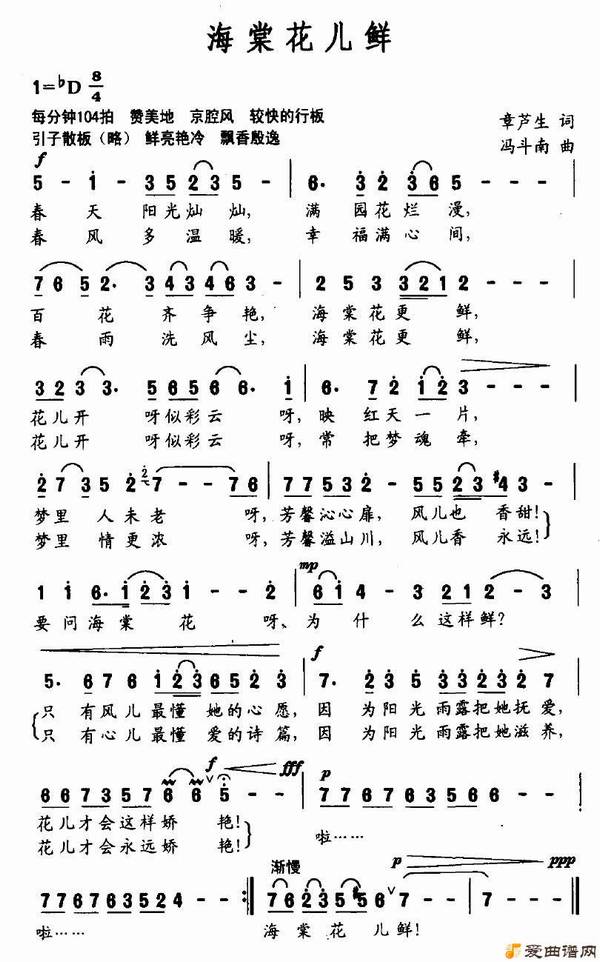 海棠花儿鲜
1=♭D 8/4
每分钟104拍 赞美地 京腔风 较快的行板
章芦生 词
引子散板（略） 鲜亮艳冷 飘香殷逸
冯斗南 曲
f
5 - 1 - 3 5 2 3 5 - - - | 6. 3 2 3 6 5. 3 - - - |
春 天 阳光灿灿, 满 园花烂 漫,
春 风 多温暖, 幸 福满心间,
7 6 5 2. 3 4 3 4 6 3 - | 2 5 3 3 2 1 2 - - - |
百 花 齐争艳, 海棠花更 鲜,
春 雨 洗风尘, 海棠花更 鲜,
3 2 3 3. 5 6 5 6 6. 1 | 6. 7 2 1 2 3 - - - |
花儿开 呀似彩云 呀,映 红天一片,
花儿开 呀似彩云 呀,常 把梦魂牵,
2 7 3 5. 2 7 - - 7 6 | 7 7 5 5 3 2 - 5 5 2 3 #4 3 - |
梦里 人未老 呀,芳馨沁心扉, 风儿也 香甜!
梦里 情更浓 呀,芳馨溢山川, 风儿香 永远!
mp
1 1 6. 1 2 3 1 - - 2 | 6 1 4 - - 3 2 1 2 - 3 |
要问海棠 花 呀、为 什 么这样鲜?
f
5. 6 7 6 1 2 3 6 5 2 3 | 7. 2 3 5 3 3 2 3 2 7 |
只 有风儿最懂 她的心愿, 因 为阳光雨露把她抚爱,
只 有心儿最懂 爱的诗篇, 因 为阳光雨露把她滋养,
f fff p
6 6 7 3 5 7 6 6 5 - - | 7 7 6 7 6 3 5 6 6 - - |
花儿才会这样娇 艳! 啦……
花儿才会永远娇 艳!
渐慢 p ppp
7 7 6 7 6 3 5 2 4 - - :| 7 6 2 3 5 5 6 7 - 7 - - - ‖
啦…… 海 棠 花 儿 鲜!
爱曲谱网